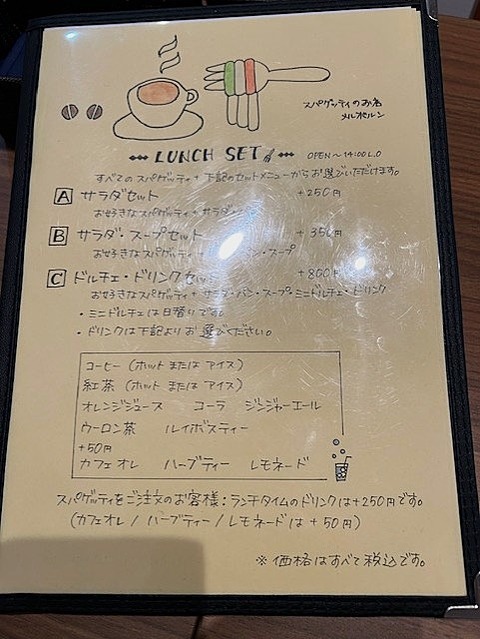 スパゲッティのお店
メルボルン
LUNCH SET
OPEN～14:00L.O
すべてのスパゲッティ+下記のセットメニューからお選びいただけます。
A サラダセット +250円
お好きなスパゲッティ+サラダ・パン
B サラダ・スープセット +350円
お好きなスパゲッティ+ パン・スープ
C ドルチェ・ドリンクセット +800円
お好きなスパゲッティ+サラダ・パン・スープ・ミニドルチェ・ドリンク
・ミニドルチェは日替りです。
・ドリンクは下記よりお選びください。
コーヒー(ホットまたはアイス)
紅茶(ホットまたはアイス)
オレンジジュース コーラ ジンジャーエール
ウーロン茶 ルイボスティー
+50円
カフェオレ ハーブティー レモネード
スパゲッティをご注文のお客様:ランチタイムのドリンクは+250円です。
(カフェオレ/ハーブティー/レモネードは+50円)
※価格はすべて税込です。